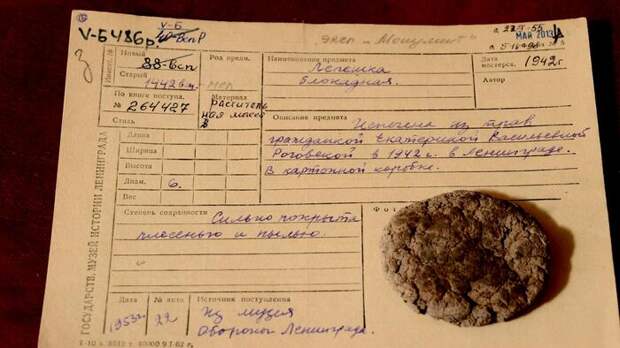 V-Б486р.
V-Б
экп „Монумент"
МАЙ 2013
Инвент. №
Новый
88-всп
Старый
1942 в.м
По книге поступ.
№ 264427
Стиль
Род предм.
Материал
раститель
ная масса
Наименование предмета
Лепешка
блокадная.
Дата
мастерск. 1942г.
Автор
Описание предмета
Испечена из трав
гражданкой Екатериной Васильевной
Роговской в 1942 г. в Ленинграде.
В картонной коробке.
Длина
Ширина
Высота
Диам. 6.
Вес
Степень сохранности Сильно покрыта
плесенью и пылью.
Фот
Дата
1953г.
№ акта
22
Источник поступления
Из музея
Обороны Ленинграда.
ГОСУДАРСТВ. МУЗЕЙ ИСТОРИИ ЛЕНИНГРАДА